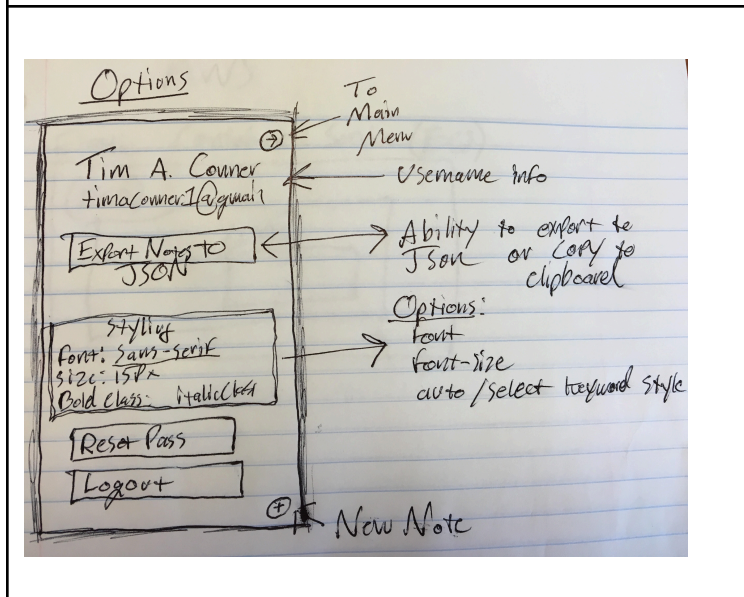 Options
To
Main
Menu
→
Tim A. Conner
timaconner1@gmail
Username info
Export Notes to
JSON
Ability to export to
JSon or Copy to
clipboard
Styling
Font: Sans-serif
Size: 15Px
Bold Class: italicClass
Options:
font
font-size
auto/select keyword style
Reset Pass
Logout
+
New Note